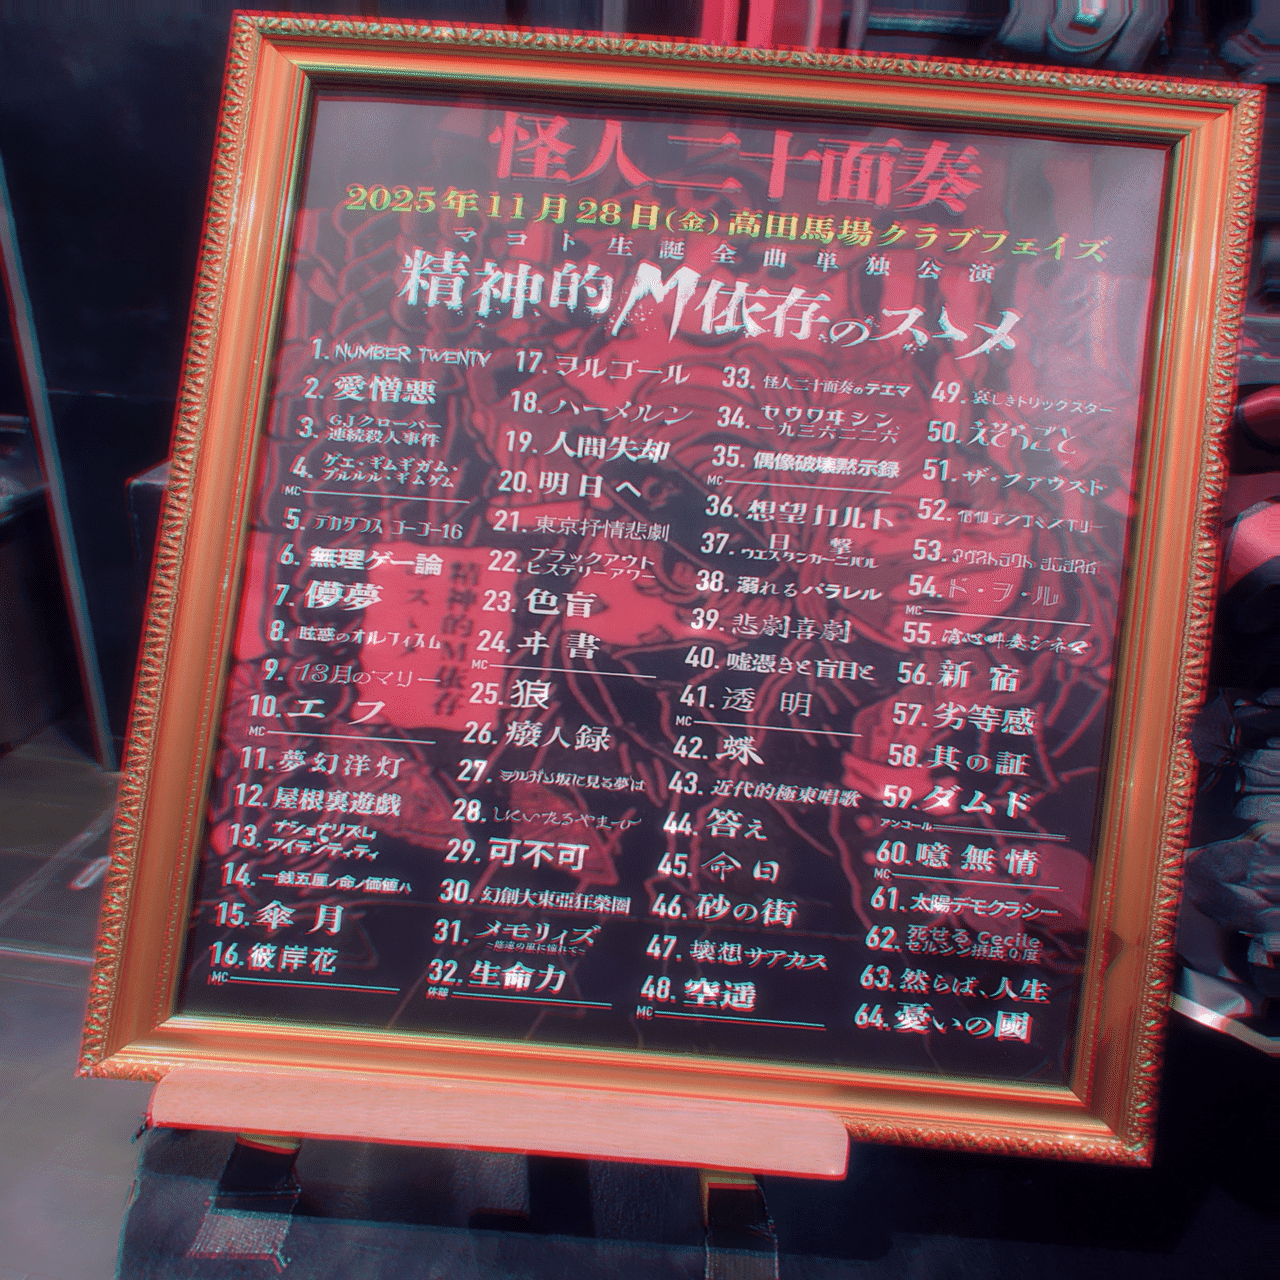 怪人二十面奏
2025年11月28日(金)高田馬場クラブフェイズ
マコト生誕全曲単独公演
精神的M依存のスゝメ
1. NUMBER TWENTY
2. 愛憎悪
3. G.Jクローバー
連続殺人事件
4. ゲエ・ギムギガム・
プルルル・ギムゲム
MC
5. デカダンス ゴーゴー16
6. 無理ゲー論
7. 儚夢
8. 眩惑のオルフィスム
9. 13月のマリー
10. エフ
MC
11. 夢幻洋灯
12. 屋根裏遊戯
13. ナショナリズム
アイデンティティ
14. 一銭五厘ノ命ノ価値ハ
15. 傘月
16. 彼岸花
MC
17. ヲルゴール
18. ハーメルン
19. 人間失却
20. 明日へ
21. 東京抒情悲劇
22. ブラックアウト
ヒステリーアワー
23. 色盲
24. ヰ書
MC
25. 狼
26. 癈人録
27. 坂に見る夢は
28. しにいたるやまーひ
29. 可不可
30. 幻創大東亞狂榮圏
31. メモリィズ
〜悠遠の風に憧れて〜
32. 生命力
休憩
33. 怪人二十面奏のテエマ
34. セウワヰシン
一九三六二二六
35. 偶像破壊黙示録
MC
36. 想望カルト
37. 目撃
ウエスタンカーニバル
38. 溺れるパラレル
39. 悲劇喜劇
40. 嘘憑きと盲目と
41. 透明
MC
42. 蝶
43. 近代的極東唱歌
44. 答え
45. 命日
46. 砂の街
47. 壊想サアカス
48. 空遥
MC
49. 哀しきトリックスター
50. えそらごと
51. ザ・ファウスト
52. 信仰アンチミステリー
53.
54. ド・ヲ・ル
MC
55. 心中奏シネマ
56. 新宿
57. 劣等感
58. 其の証
59. ダムド
アンコール
60. 噫無情
MC
61. 太陽デモクラシー
62. 死せる Cecile
セルシン摂氏0度
63. 然らば、人生
64. 憂いの國